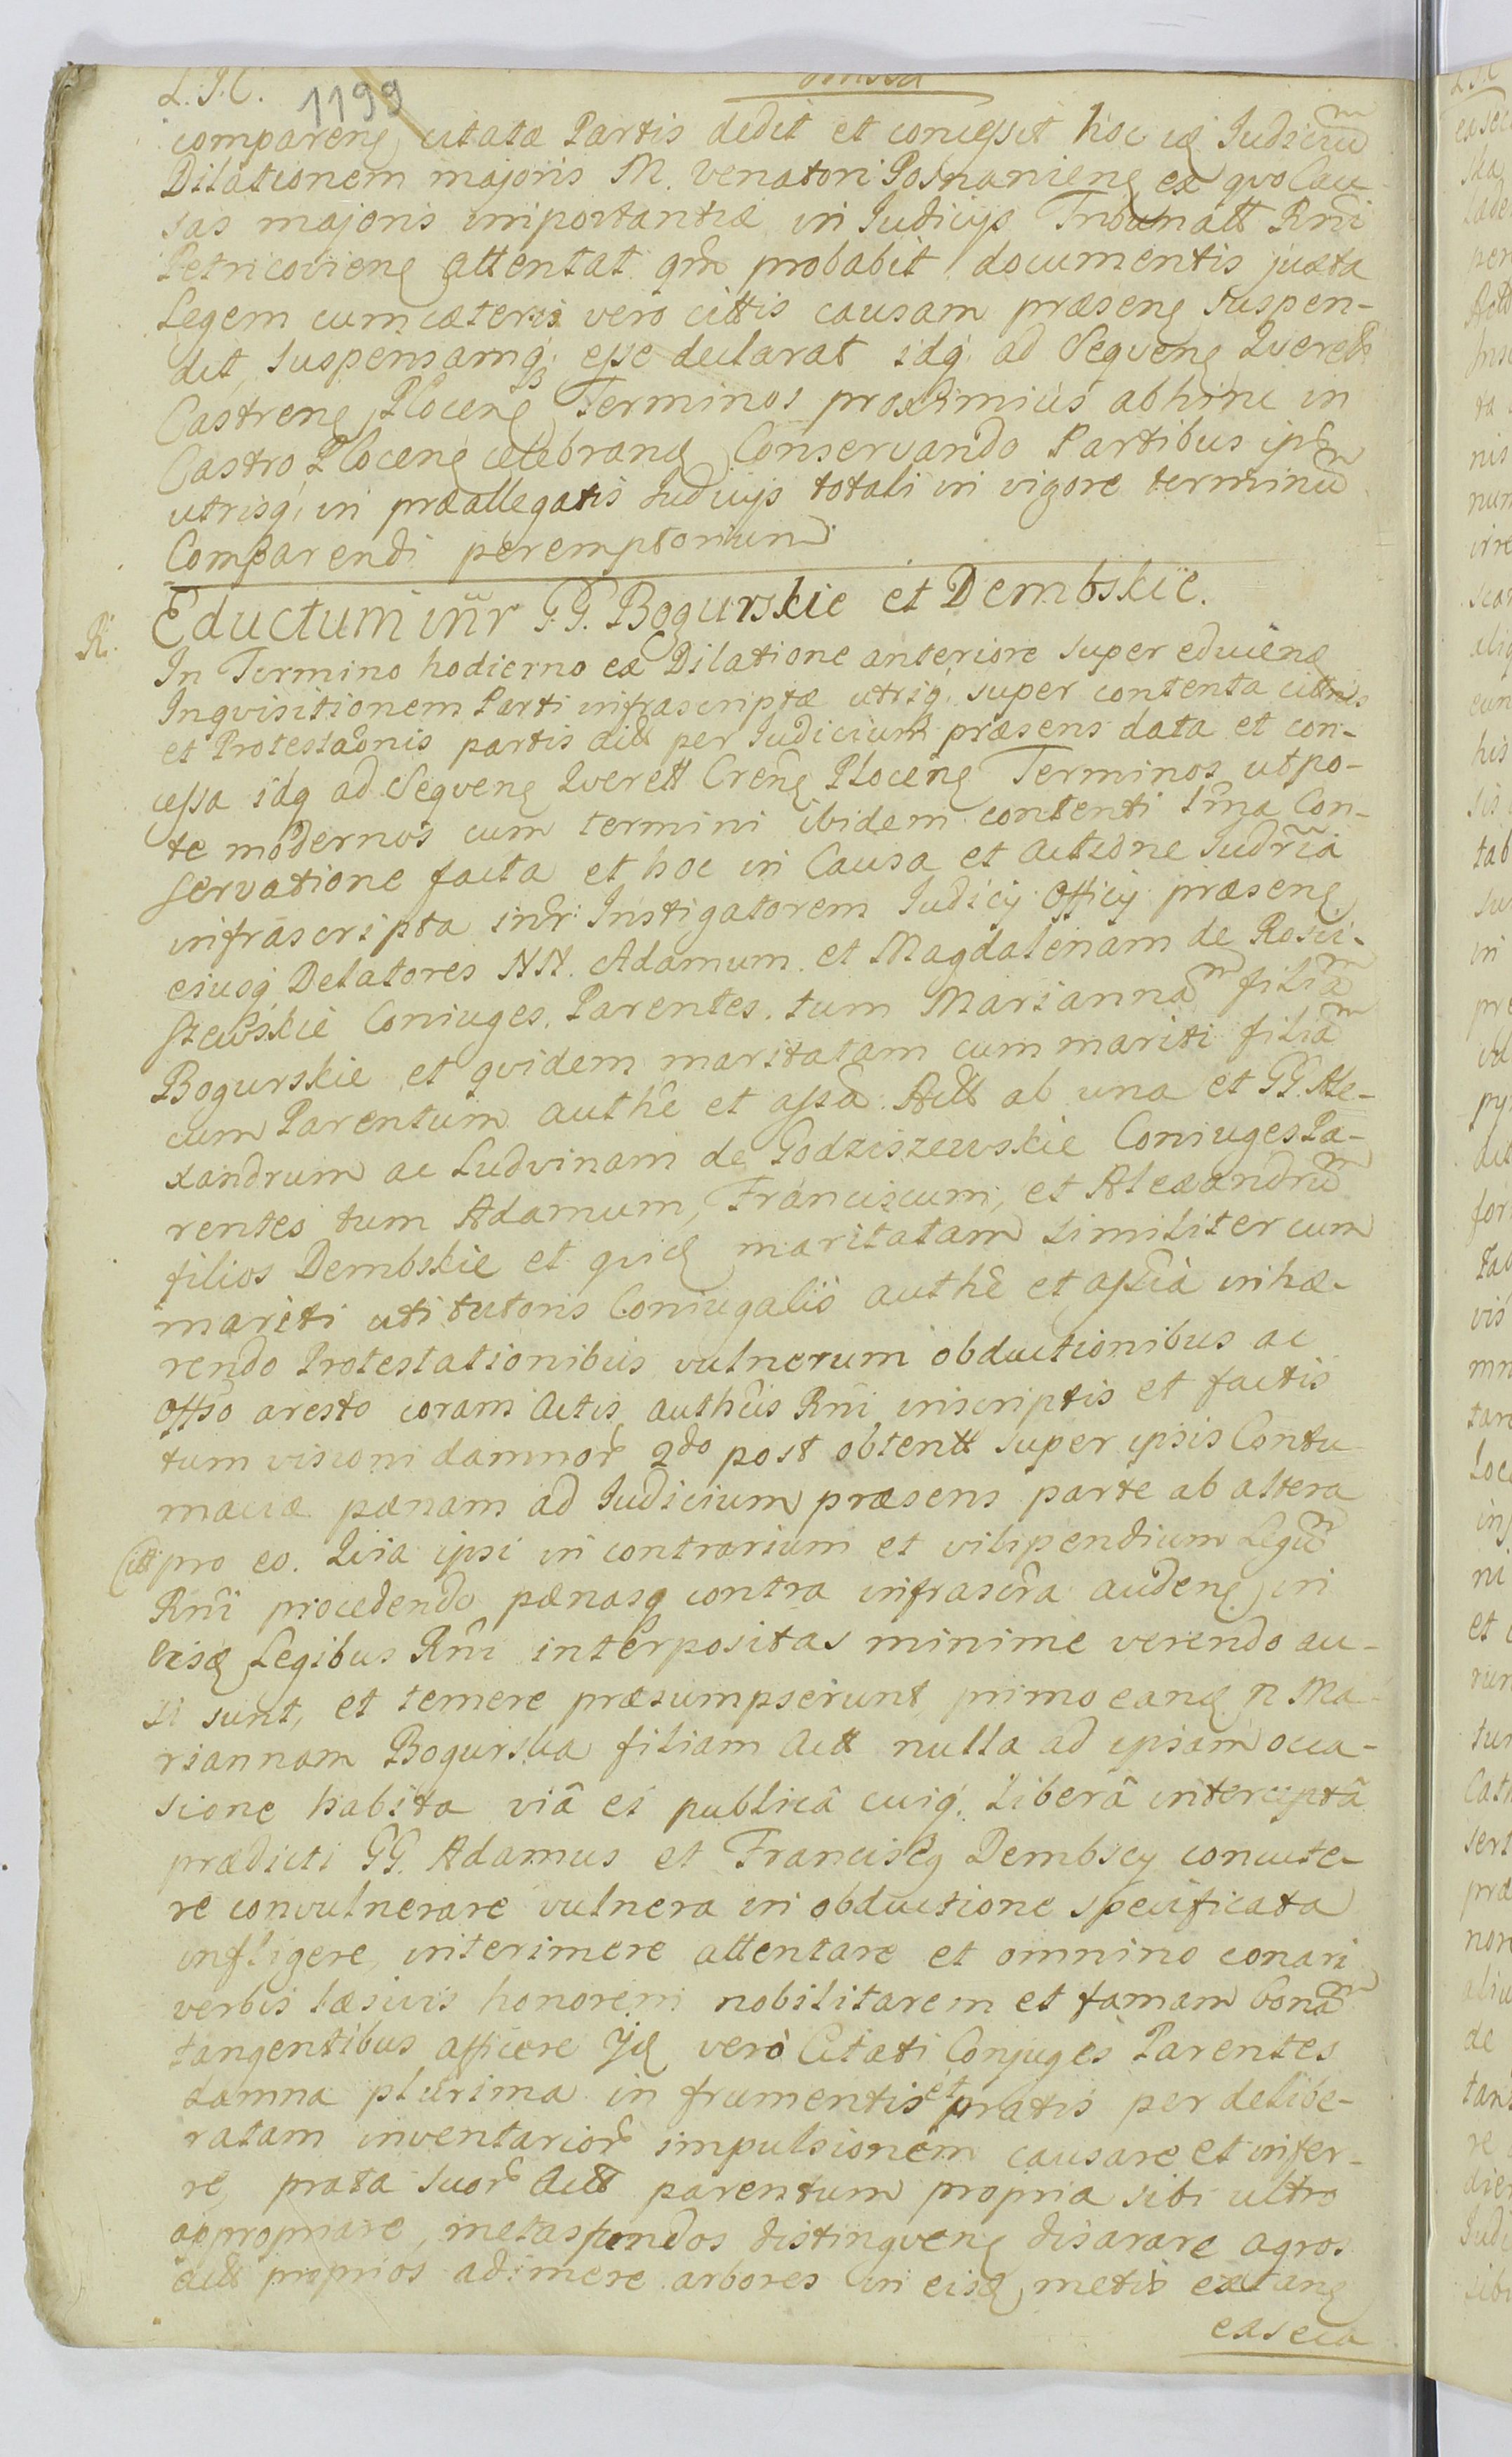 L.P.C. 1199
comparenς citatæ Partis dedit et concessit hoc idς Judicium
Dilationem majoris M. Venatori Posnanienς ex qvo Cau-
sas majoris importantiæ in Judicijs Tribunatt Rñi
Petricovienς attentat qm probabit documentis juxta
Legem cum cæteris vero cittis causam præsenς suspen-
dit, suspensamq; esse declarat idq; ad Seqvenς Qverett
Castrenς Plocenς Terminos proximius abhinc in
Castro Plocenς celebranς Conservando Partibus ipς
utrisq; in præallegatis Judicijs totali in vigore terminum
Comparendi peremptorium.
Eductum inr̃ GG. Bogurskie et Dembskie.
R.
In Termino hodierno ex Dilatione anteriore super educenς
Inqvisitionem Parti infrascriptæ utriq; super contenta cittnis
et Protestaõnis partis actt per Judicium præsens data et con-
cessa idq ad Seqvenς Qverett Crenς Plocenς Terminos utpo-
te modernos cum termini ibidem contenti sr̃na Con-
servatione facta et hoc in Causa et actione Judr̃ia
infrascripta inr̃ Instigatorem Judicij Officij præsenς
ejusq Delatores NN. Adamum et Magdalenam de Rosci-
szewskie Coniuges Parentes tum Mariannam filiam
Bogurskie et qvidem maritatam cum mariti filiam
cum Parentum authẽ et assã Actt ab una et GG. Ale-
xandrum ac Ludvinam de Godziszewskie Coniuges Pa-
rentes tum Adamum, Franciscum, et Alexandrum
filios Dembskie et qvidς maritatam similiter cum
mariti uti tutoris Coniugalis authẽ et assñia inhæ-
rendo Protestationibus vulnerum obductionibus ac
Offso aresto coram Actis authcis Rñi inscriptis et factis
tum visioni damnor 2do post obtentt super ipsis Contu
maciæ pænam ad Judicium præsens parte ab altera
Citt pro eo. Qvia ipsi in contrarium et vilipendium Legum
Rñi procedendo pænasq contra infrascr̃a audenς in
eisdς Legibus Rñi interpositas minime verendo au-
si sunt, et temere præsumpserunt primo eandς N Ma-
riannam Bogurska filiam Actt nulla ad ipsam occa-
sione habita viâ ei publicâ cuiq; liberâ interceptâ
prædicti GG. Adamus et Franciscς Dembscy concute-
re convulnerare vulnera in obductione specificata
infligere interimere attentare et omnino conari
verbis læsivis honorem nobilitarem et famam bonam
tangentibus afficere Ijdς vero Citati Conjuges Parentes
damna plurima in frumentis et pratis per delibe-
ratam inventarior impulsionem causare et infer-
re, prata suor Actt parentum propria sibi ultro
appropriare, metas fundos distingvenς disarare agros
actt proprios adimere arbores in eisdς metis extanς
exseca